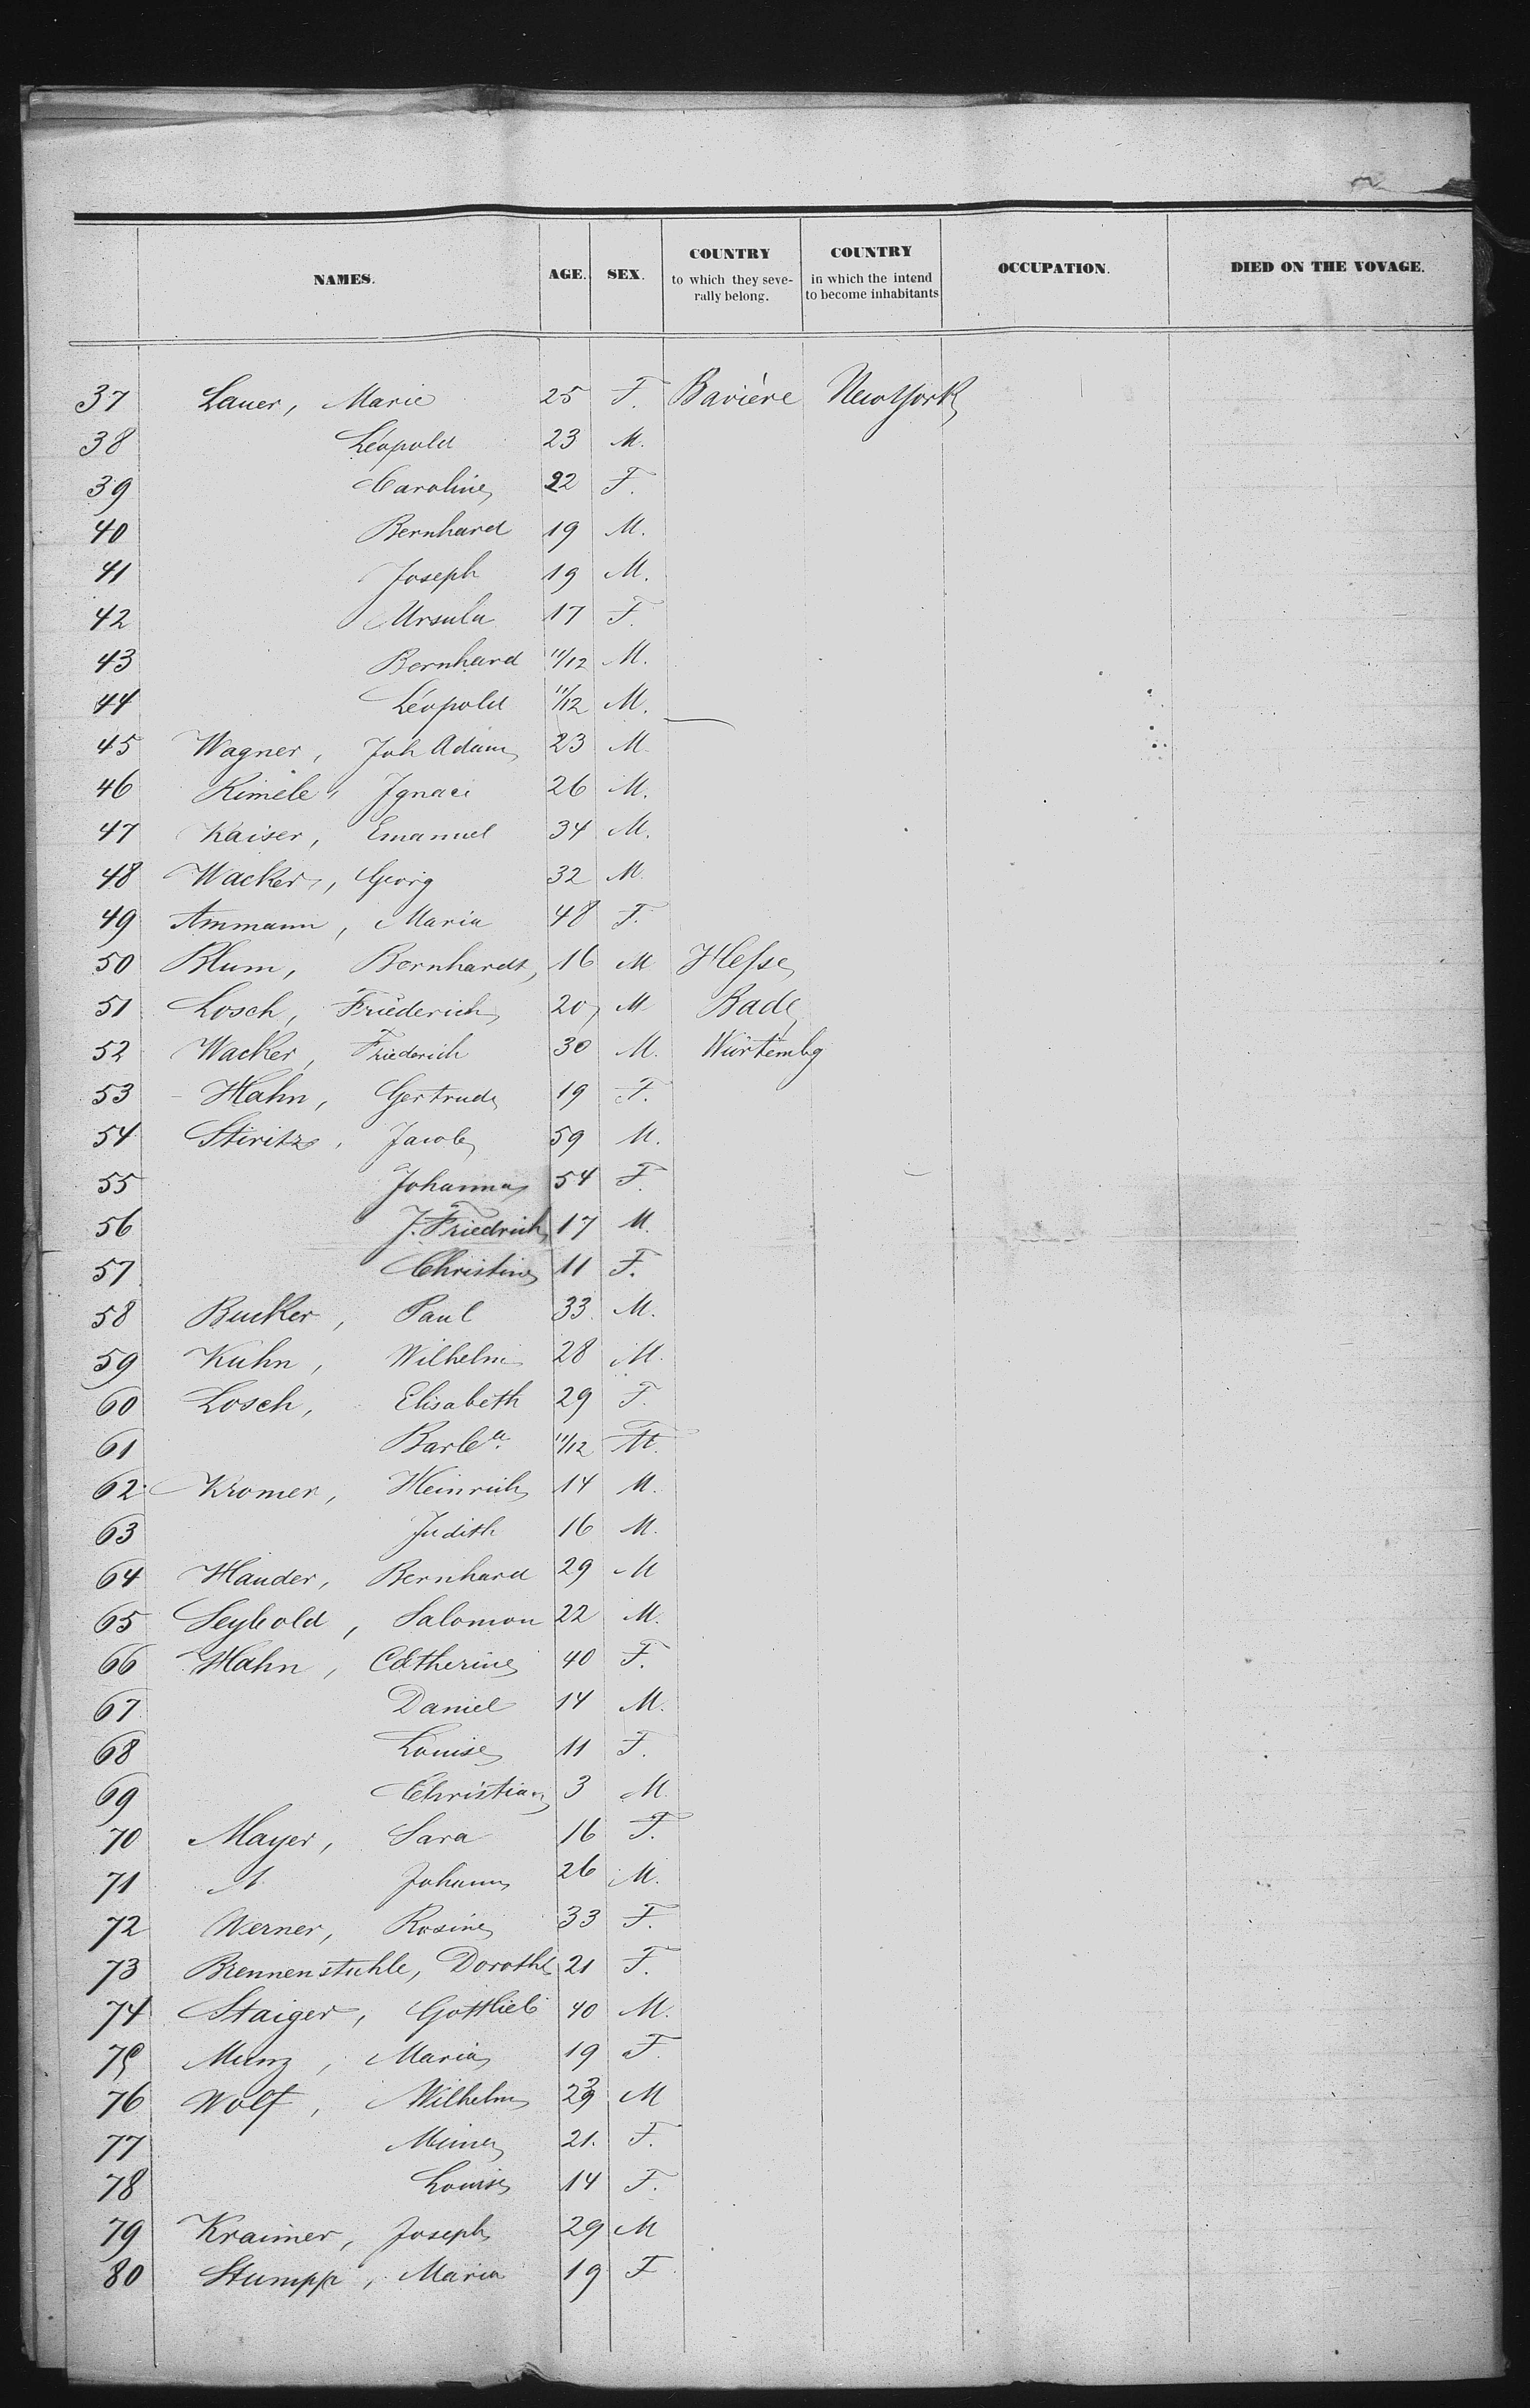 NAMES. AGE. SEX. COUNTRY to which they seve- rally belong. COUNTRY in which the intend to become inhabitants OCCUPATION. DIED ON THE VOYAGE.
37 Lauer, Marie 25 F. Bavière NewYork
38 Léopold 23 M.
39 Caroline 22 F.
40 Bernhard 19 M.
41 Joseph 19 M.
42 Ursula 17 F.
43 Bernhard 11/12 M.
44 Léopold 11/12 M.
45 Wagner, Joh Adam 23 M
46 Kimele, Ignaci 26 M.
47 Kaiser, Emanuel 34 M.
48 Wacker, Georg 32 M.
49 Ammann, Maria 48 F.
50 Blum, Bernhardt, 16 M Hesse
51 Losch, Friederich 20 M Bade
52 Wacker, Friederich 30 M. Würtembg
53 Hahn, Gertrude 19 F.
54 Stiritz, Jacob 59 M.
55 Johanna 54 F.
56 J. Friedrich 17 M.
57 Christine 11 F.
58 Bucker, Paul 33 M.
59 Kuhn, Wilhelm 28 M.
60 Losch, Elisabeth 29 F.
61 Barb.a 11/12
62 Kromer, Heinrich 14 M.
63 Judith 16 M.
64 Hauder, Bernhard 29 M
65 Seybold, Salomon 22 M.
66 Hahn, Catherine 40 F.
67 Daniel 14 M.
68 Louise 11 F.
69 Christian 3 M.
70 Mayer, Sara 16 F.
71 Johann 26 M.
72 Werner, Rosine 33 F.
73 Brennenstuhle, Dorothe 21 F.
74 Staiger, Gottlieb 40 M.
75 Munz, Maria 19 F
76 Wolf, Wilhelm M
77 21. F.
78 Louise 14 F.
79 Kraimer, Joseph 29 M
80 Stumpp, Maria 19 F